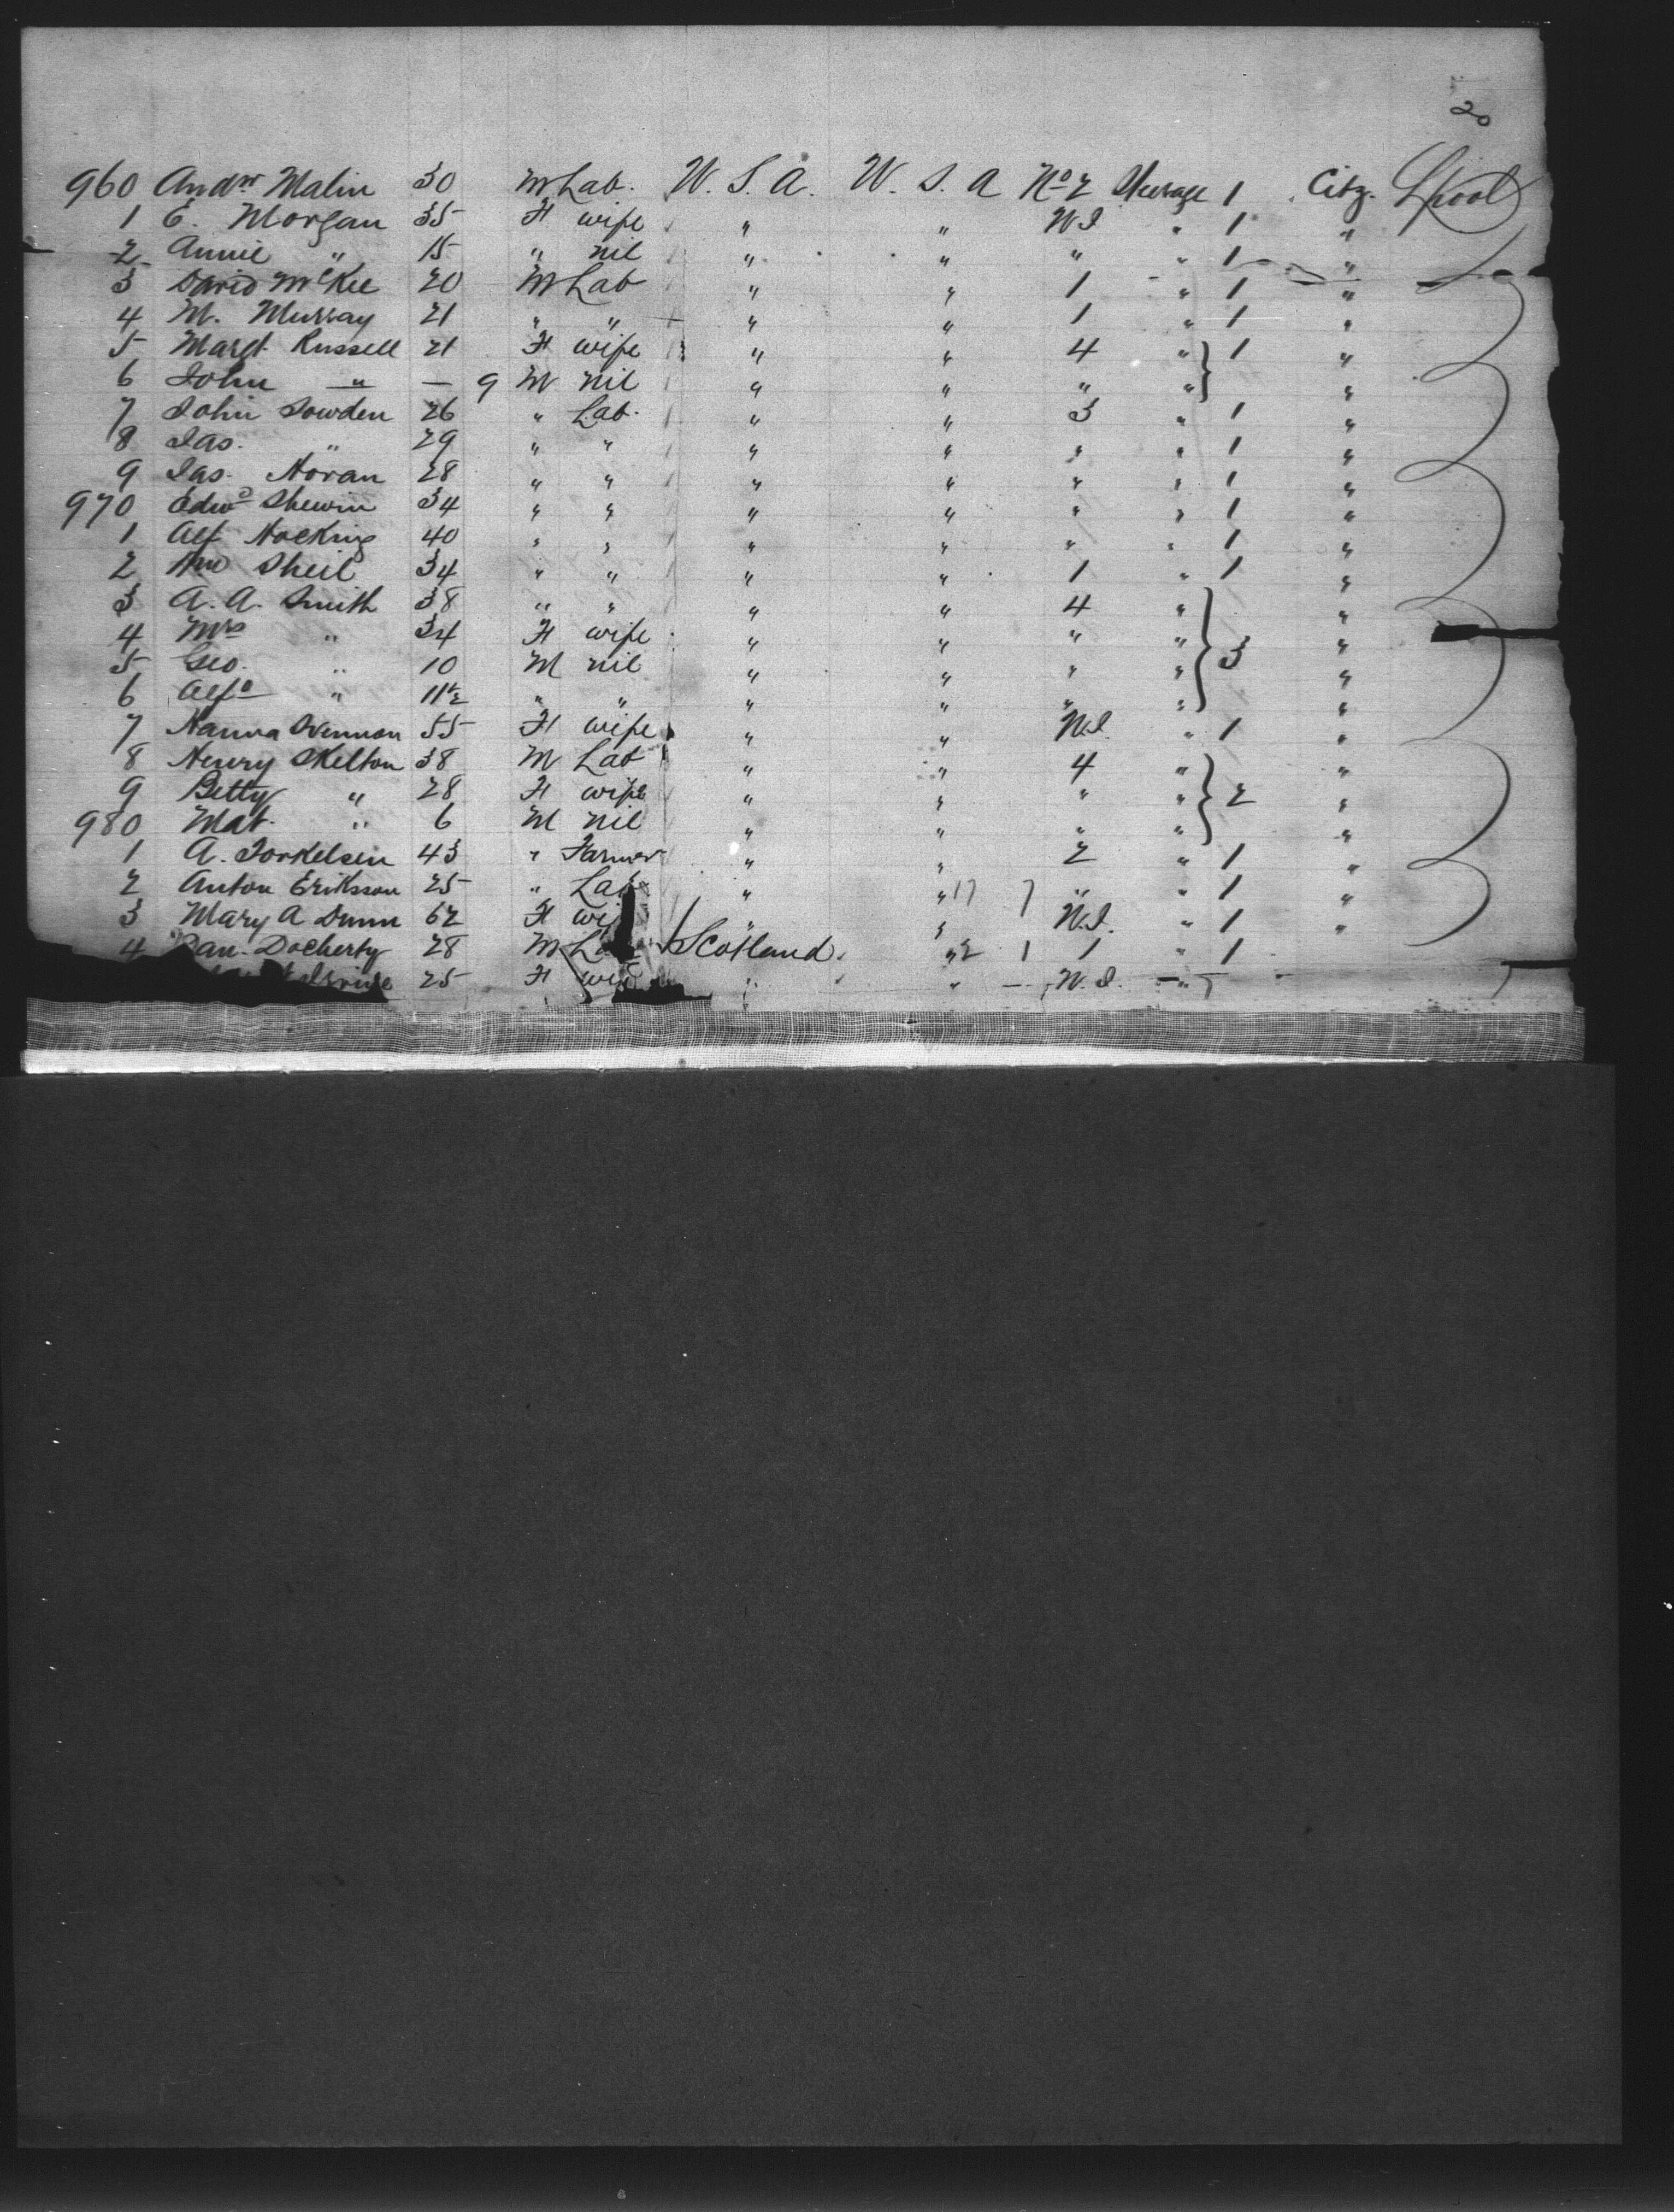 20
960 Andw Malin 30 M Lab. U. S. A. U. S. A No 2 Steerage 1 Citz. Lpool
1 E. Morgan 35 F wife " " W.I " 1 "
2 Annie " 15 " nil " " " " 1 "
3 David McKee 20 M Lab " " 1 " 1 "
4 M. Murray 21 " " " " 1 " 1 "
5 Margt Russell 21 F wife " " 4 " 1 "
6 John " — 9 M nil " " " " "
7 John Sowden 26 " Lab. " " 3 " 1 "
8 Jas. " 29 " " " " " " 1 "
9 Jas. Horan 28 " " " " " " 1 "
970 Edwd Shewin 34 " " " " " " 1 "
1 Alf Hocking 40 " " " " " " 1 "
2 Wm Sheil 34 " " " " 1 " 1 "
3 A. A. Smith 38 " " " " 4 " "
4 Mrs " 34 F wife " " " " "
5 Geo. " 10 M nil " " " " 3 "
6 Alfd " 11½ " " " " " " "
7 Hanna 55 F wife " " W.I. " 1 "
8 Henry Skelton 38 M Lab " " 4 " "
9 Betty " 28 F wife " " " " 2 "
980 Mat. " 6 M nil " " " " "
1 A. Torkelsen 43 " Farmer " " 2 " 1 "
2 Anton Eriksson 25 " Lab " " 17 7 " " 1 "
3 Mary A Dunn 62 F " " W.I. " 1 "
4 Dan. Docherty 28 M Scotland. " 2 1 1 " 1
25 F " " W.I. "